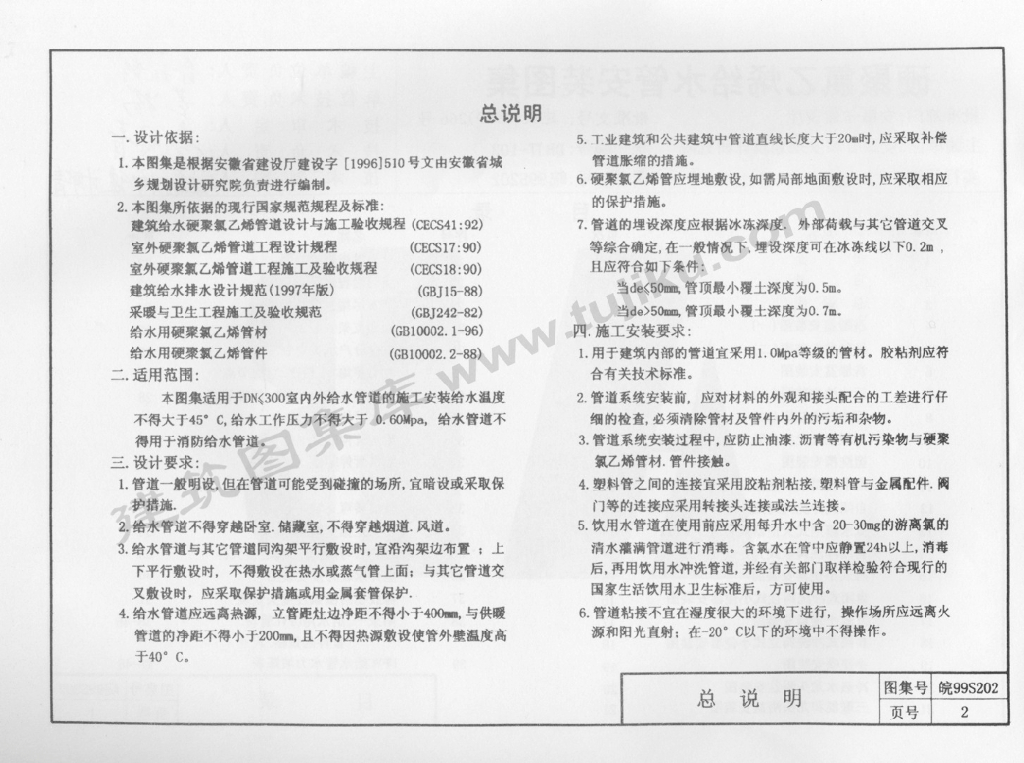 总说明
一.设计依据:
1.本图集是根据安徽省建设厅建设字[1996]510号文由安徽省城
乡规划设计研究院负责进行编制。
2.本图集所依据的现行国家规范规程及标准:
建筑给水硬聚氯乙烯管道设计与施工验收规程 (CECS41:92)
室外硬聚氯乙烯管道工程设计规程 (CECS17:90)
室外硬聚氯乙烯管道工程施工及验收规程 (CECS18:90)
建筑给水排水设计规范(1997年版) (GBJ15-88)
采暖与卫生工程施工及验收规范 (GBJ242-82)
给水用硬聚氯乙烯管材 (GB10002.1-96)
给水用硬聚氯乙烯管件 (GB10002.2-88)
二.适用范围:
本图集适用于DN≤300室内外给水管道的施工安装给水温度
不得大于45°C,给水工作压力不得大于 0.60Mpa, 给水管道不
得用于消防给水管道。
三.设计要求:
1.管道一般明设.但在管道可能受到碰撞的场所,宜暗设或采取保
护措施.
2.给水管道不得穿越卧室.储藏室,不得穿越烟道.风道。
3.给水管道与其它管道同沟架平行敷设时,宜沿沟架边布置 ；上
下平行敷设时, 不得敷设在热水或蒸气管上面；与其它管道交
叉敷设时, 应采取保护措施或用金属套管保护.
4.给水管道应远离热源, 立管距灶边净距不得小于400mm,与供暖
管道的净距不得小于200mm,且不得因热源敷设使管外壁温度高
于40°C。
5.工业建筑和公共建筑中管道直线长度大于20m时,应采取补偿
管道胀缩的措施。
6.硬聚氯乙烯管应埋地敷设,如需局部地面敷设时,应采取相应
的保护措施。
7.管道的埋设深度应根据冰冻深度. 外部荷载与其它管道交叉
等综合确定,在一般情况下.埋设深度可在冰冻线以下0.2m ,
且应符合如下条件:
当de≤50mm,管顶最小覆土深度为0.5m。
当de>50mm,管顶最小覆土深度为0.7m。
四.施工安装要求:
1.用于建筑内部的管道宜采用1.0Mpa等级的管材。胶粘剂应符
合有关技术标准。
2.管道系统安装前, 应对材料的外观和接头配合的工差进行仔
细的检查,必须清除管材及管件内外的污垢和杂物。
3.管道系统安装过程中,应防止油漆.沥青等有机污染物与硬聚
氯乙烯管材.管件接触。
4.塑料管之间的连接宜采用胶粘剂粘接,塑料管与金属配件.阀
门等的连接应采用转接头连接或法兰连接。
5.饮用水管道在使用前应采用每升水中含 20-30mg的游离氯的
清水灌满管道进行消毒。含氯水在管中应静置24h以上,消毒
后,再用饮用水冲洗管道,并经有关部门取样检验符合现行的
国家生活饮用水卫生标准后, 方可使用。
6.管道粘接不宜在湿度很大的环境下进行, 操作场所应远离火
源和阳光直射；在-20°C以下的环境中不得操作。
建筑图集库 www.tujiku.com
总 说 明
图集号 皖99S202
页号 2